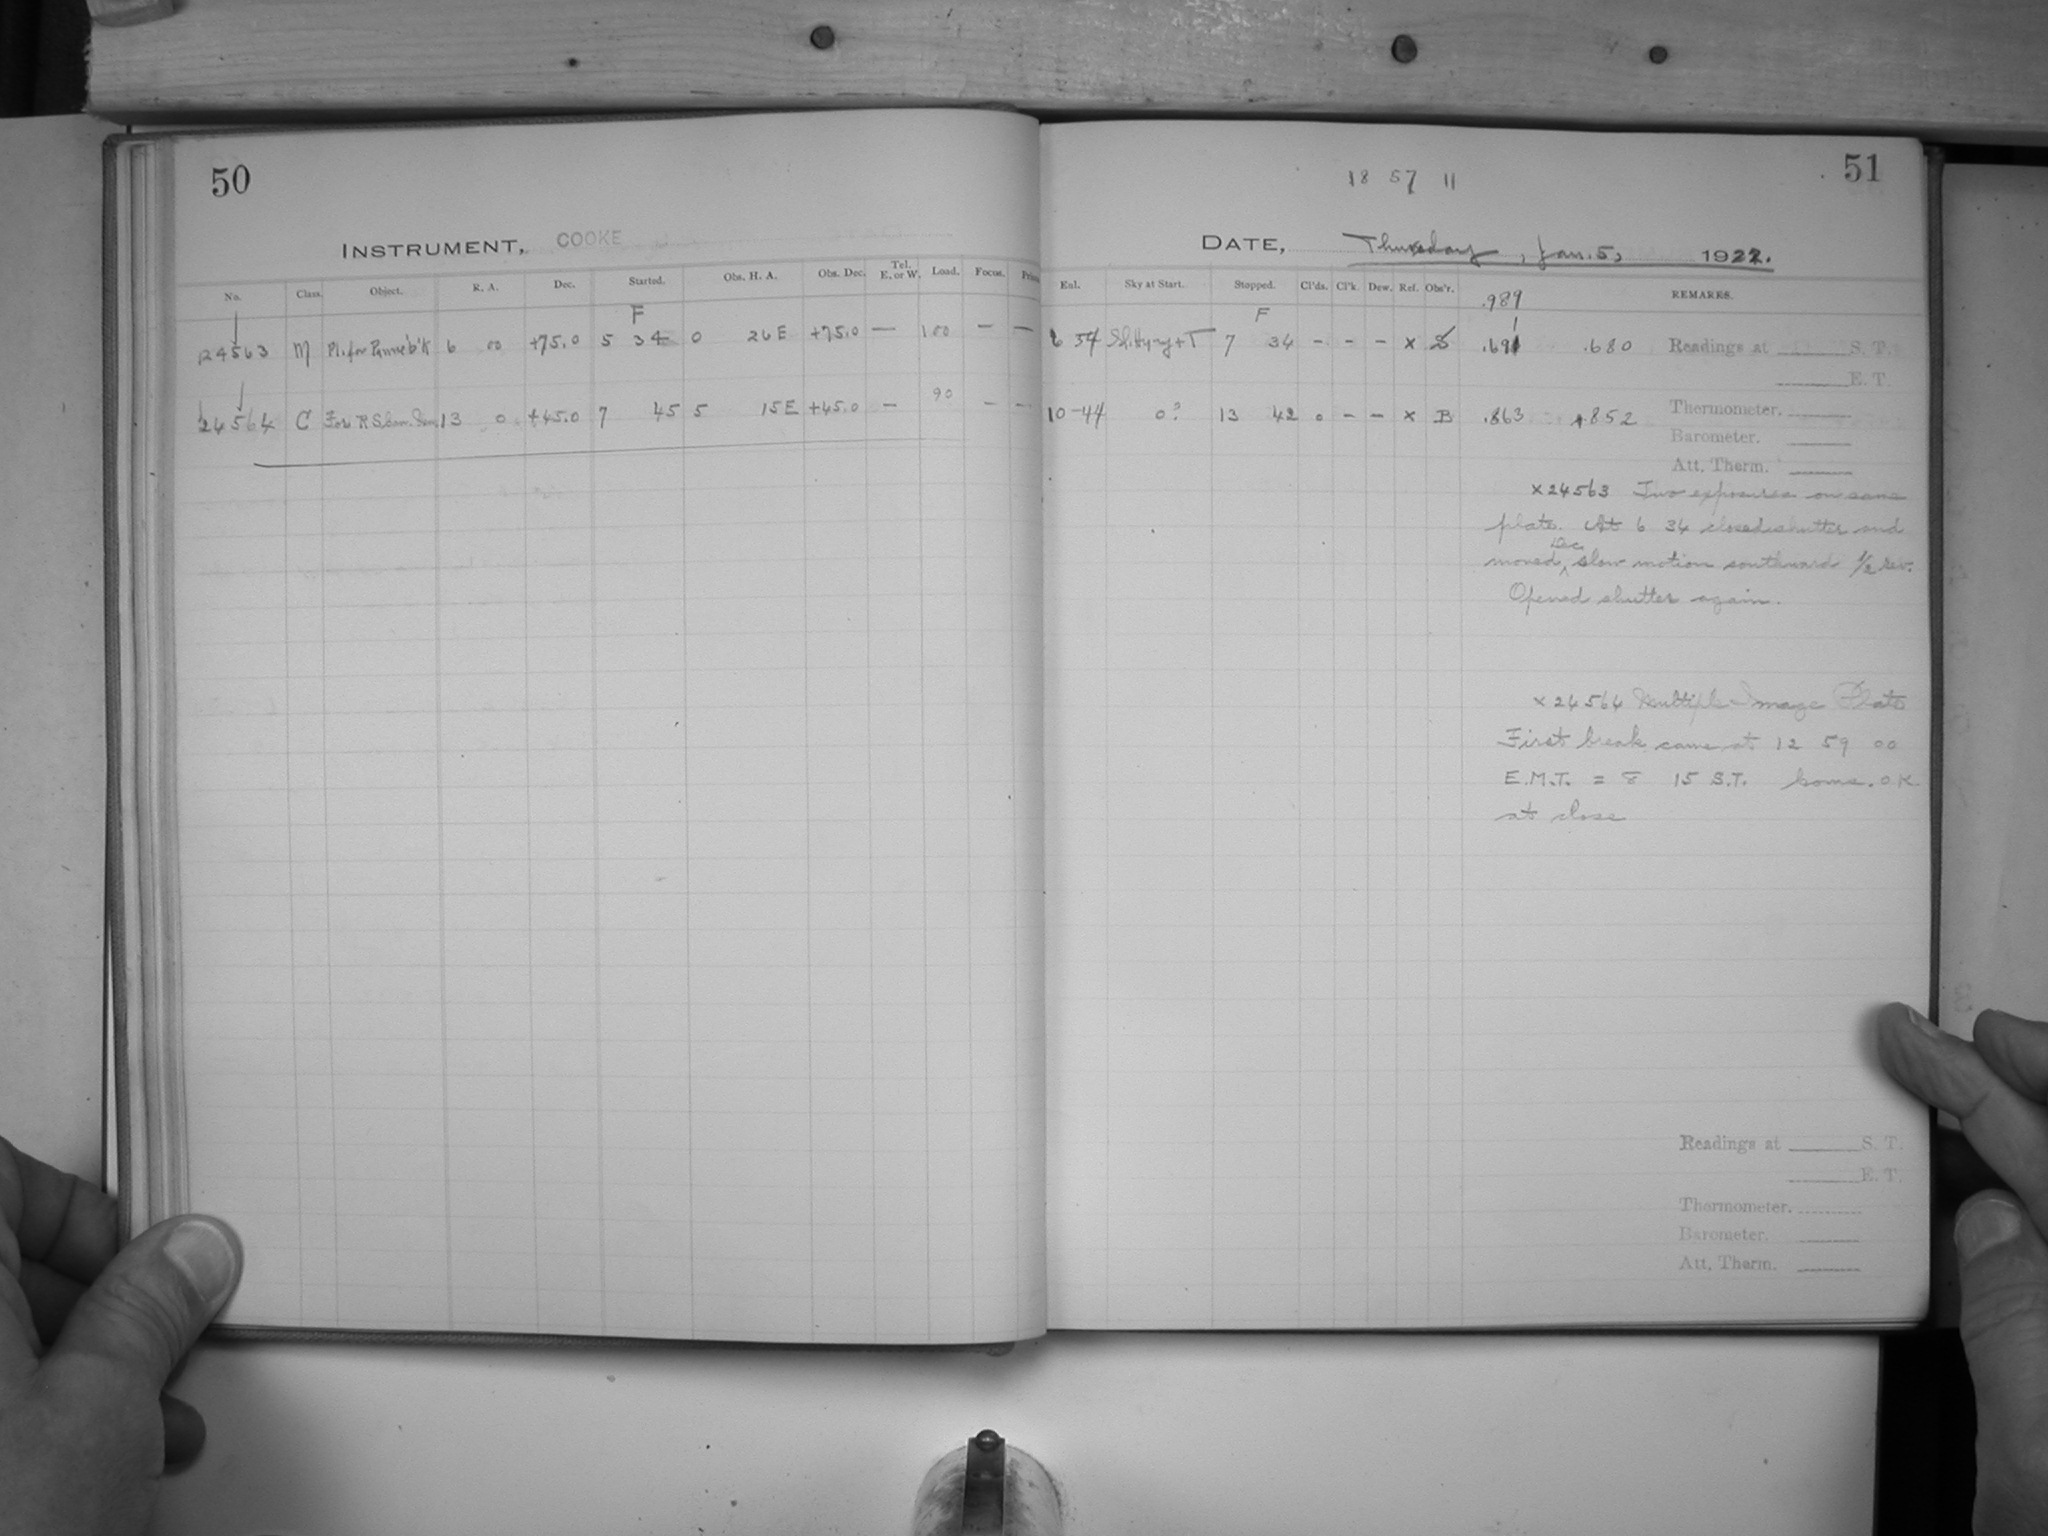 50
INSTRUMENT, COOKE
No. Class. Object. R. A. Dec. Started. Obs. H. A. Obs. Dec. Tel. E. or W. Load. Focus.
F
24563 M Pl. for 6 00 +75.0 5 34 0 26 E +75.0 — 100 — —
24564 C For R S 13 0 +45.0 7 45 5 15 E +45.0 — 90 — —
51
18 57 11
DATE, Thursday, Jan. 5, 1922.
Sky at Start. Stopped. Cl'ds. Cl'k. Dew. Ref. Obs'r. .989 REMARKS.
F
7 34 - - - x .691 .680 Readings at S. T.
E. T.
10-44 0? 13 42 0 - - x B .863 .852 Thermometer.
Barometer.
Att. Therm.
x24563 Two exposures on same
plate. At 6 34 closed shutter and
Dec.
moved slow motion southward 1/2 rev.
Opened shutter again.
x24564 Multiple Image Plate
First break came at 12 59 00
E.M.T. = 8 15 S.T. O.K.
at close
Readings at S. T.
E. T.
Thermometer.
Barometer.
Att. Therm.